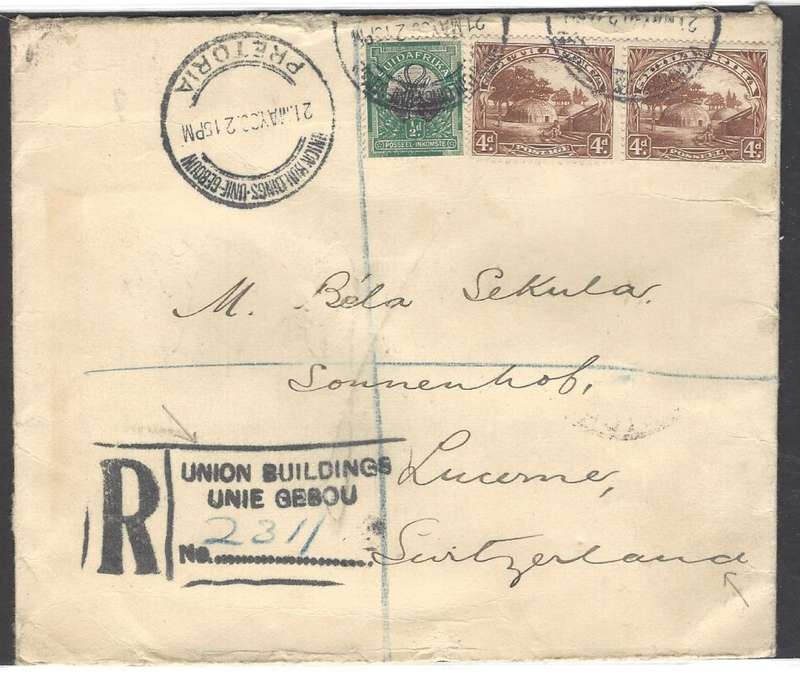 21.MAY30.2 15PM
21.MAY
SUIDAFRIKA
½d
POSSEEL-INKOMSTE
SOUTH AFRICA
4d. 4d.
POSTAGE
SUIDAFRIKA
4d. 4d.
POSSEEL
PRETORIA
21.MAY30.2 15PM
UNION BUILDINGS-UNIE-GEBOUW
M. Béla Sekula.
Sonnenhof,
Lucerne,
Switzerland
R
UNION BUILDINGS
UNIE GEBOU
No. 2311